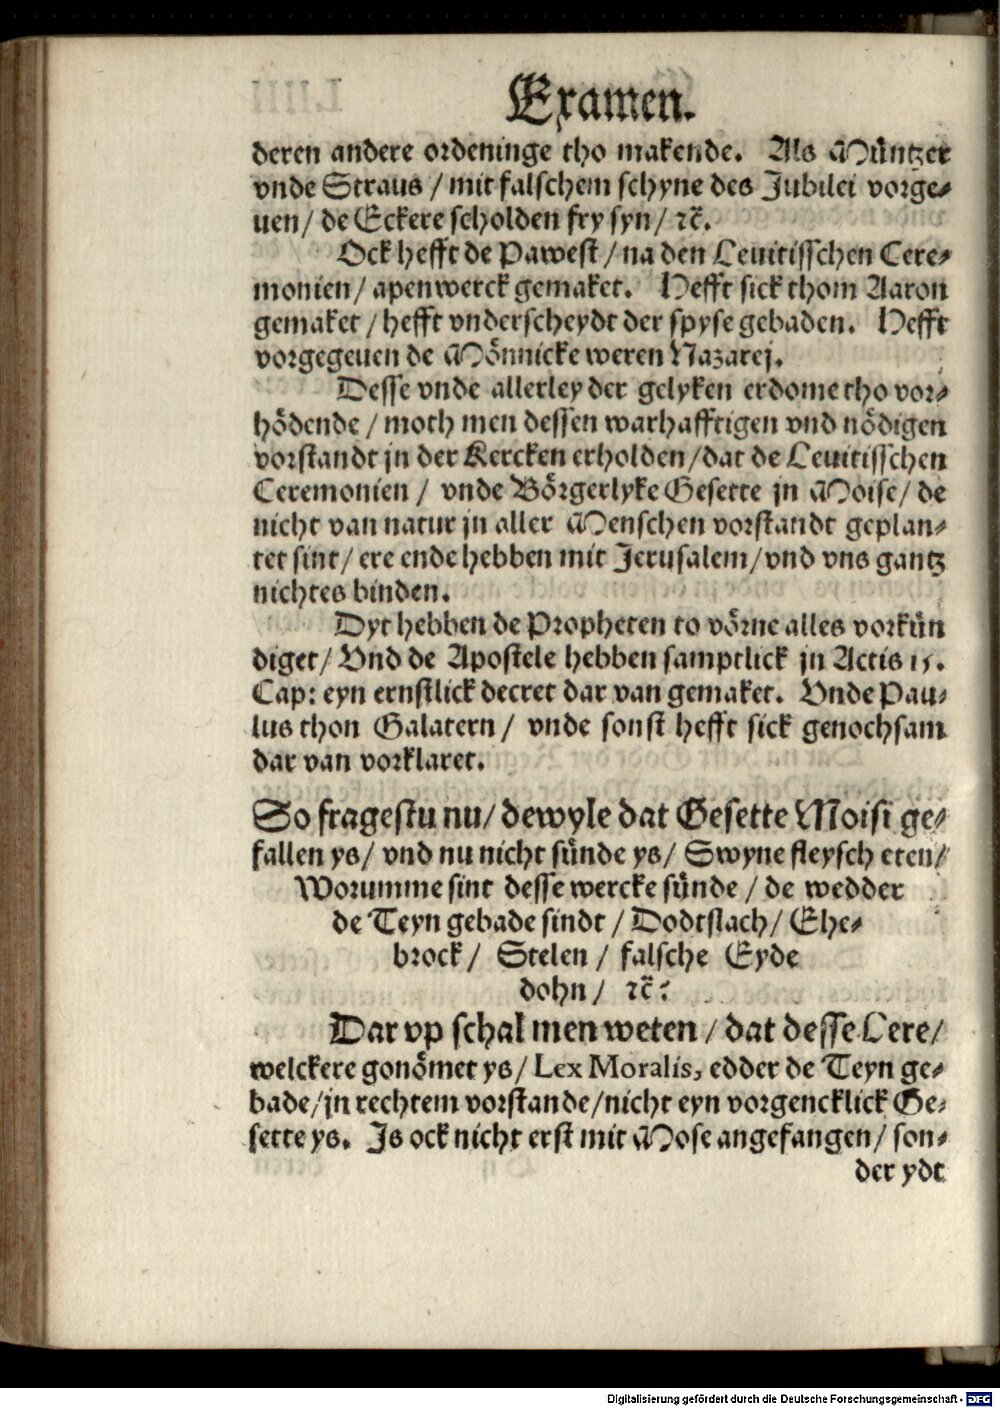 Examen.
deren andere ordeninge tho makende. Als Müntzer
vnde Straus / mit falschem schyne des Jubilei vorge⸗
uen / de Eckere scholden fry syn / ꝛc̃.
Ock hefft de Pawest / na den Leuitisschen Cere⸗
monien / apenwerck gemaket. Hefft sick thom Aaron
gemaket / hefft vnderscheydt der spyse gebaden. Hefft
vorgegeuen de Mönnicke weren Nazarej.
Desse vnde allerley der gelyken erdome tho vor⸗
hödende / moth men dessen warhafftigen vnd nödigen
vorstandt jn der Kercken erholden / dat de Leuitisschen
Ceremonien / vnde Börgerlyke Gesette jn Moise / de
nicht van natur jn aller Menschen vorstandt geplan⸗
tet sint / ere ende hebben mit Jerusalem / vnd vns gantz
nichtes binden.
Dyt hebben de Propheten to vörne alles vorkün
diget / Vnd de Apostele hebben samptlick jn Actis 15.
Cap: eyn ernstlick decret dar van gemaket. Vnde Pau⸗
lus thon Galatern / vnde sonst hefft sick genochsam
dar van vorklaret.
So fragestu nu / dewyle dat Gesette Moisi ge⸗
fallen ys / vnd nu nicht sünde ys / Swyne fleysch eten /
Worumme sint desse wercke sünde / de wedder
de Teyn gebade sindt / Dodtslach / Ehe⸗
brock / Stelen / falsche Eyde
dohn / ꝛc̃?
Dar vp schal men weten / dat desse Lere /
welckere gonömet ys / Lex Moralis, edder de Teyn ge⸗
bade / jn rechtem vorstande / nicht eyn vorgencklick Ge⸗
sette ys. Js ock nicht erst mit Mose angefangen / son⸗
der ydt
Digitalisierung gefördert durch die Deutsche Forschungsgemeinschaft - DFG